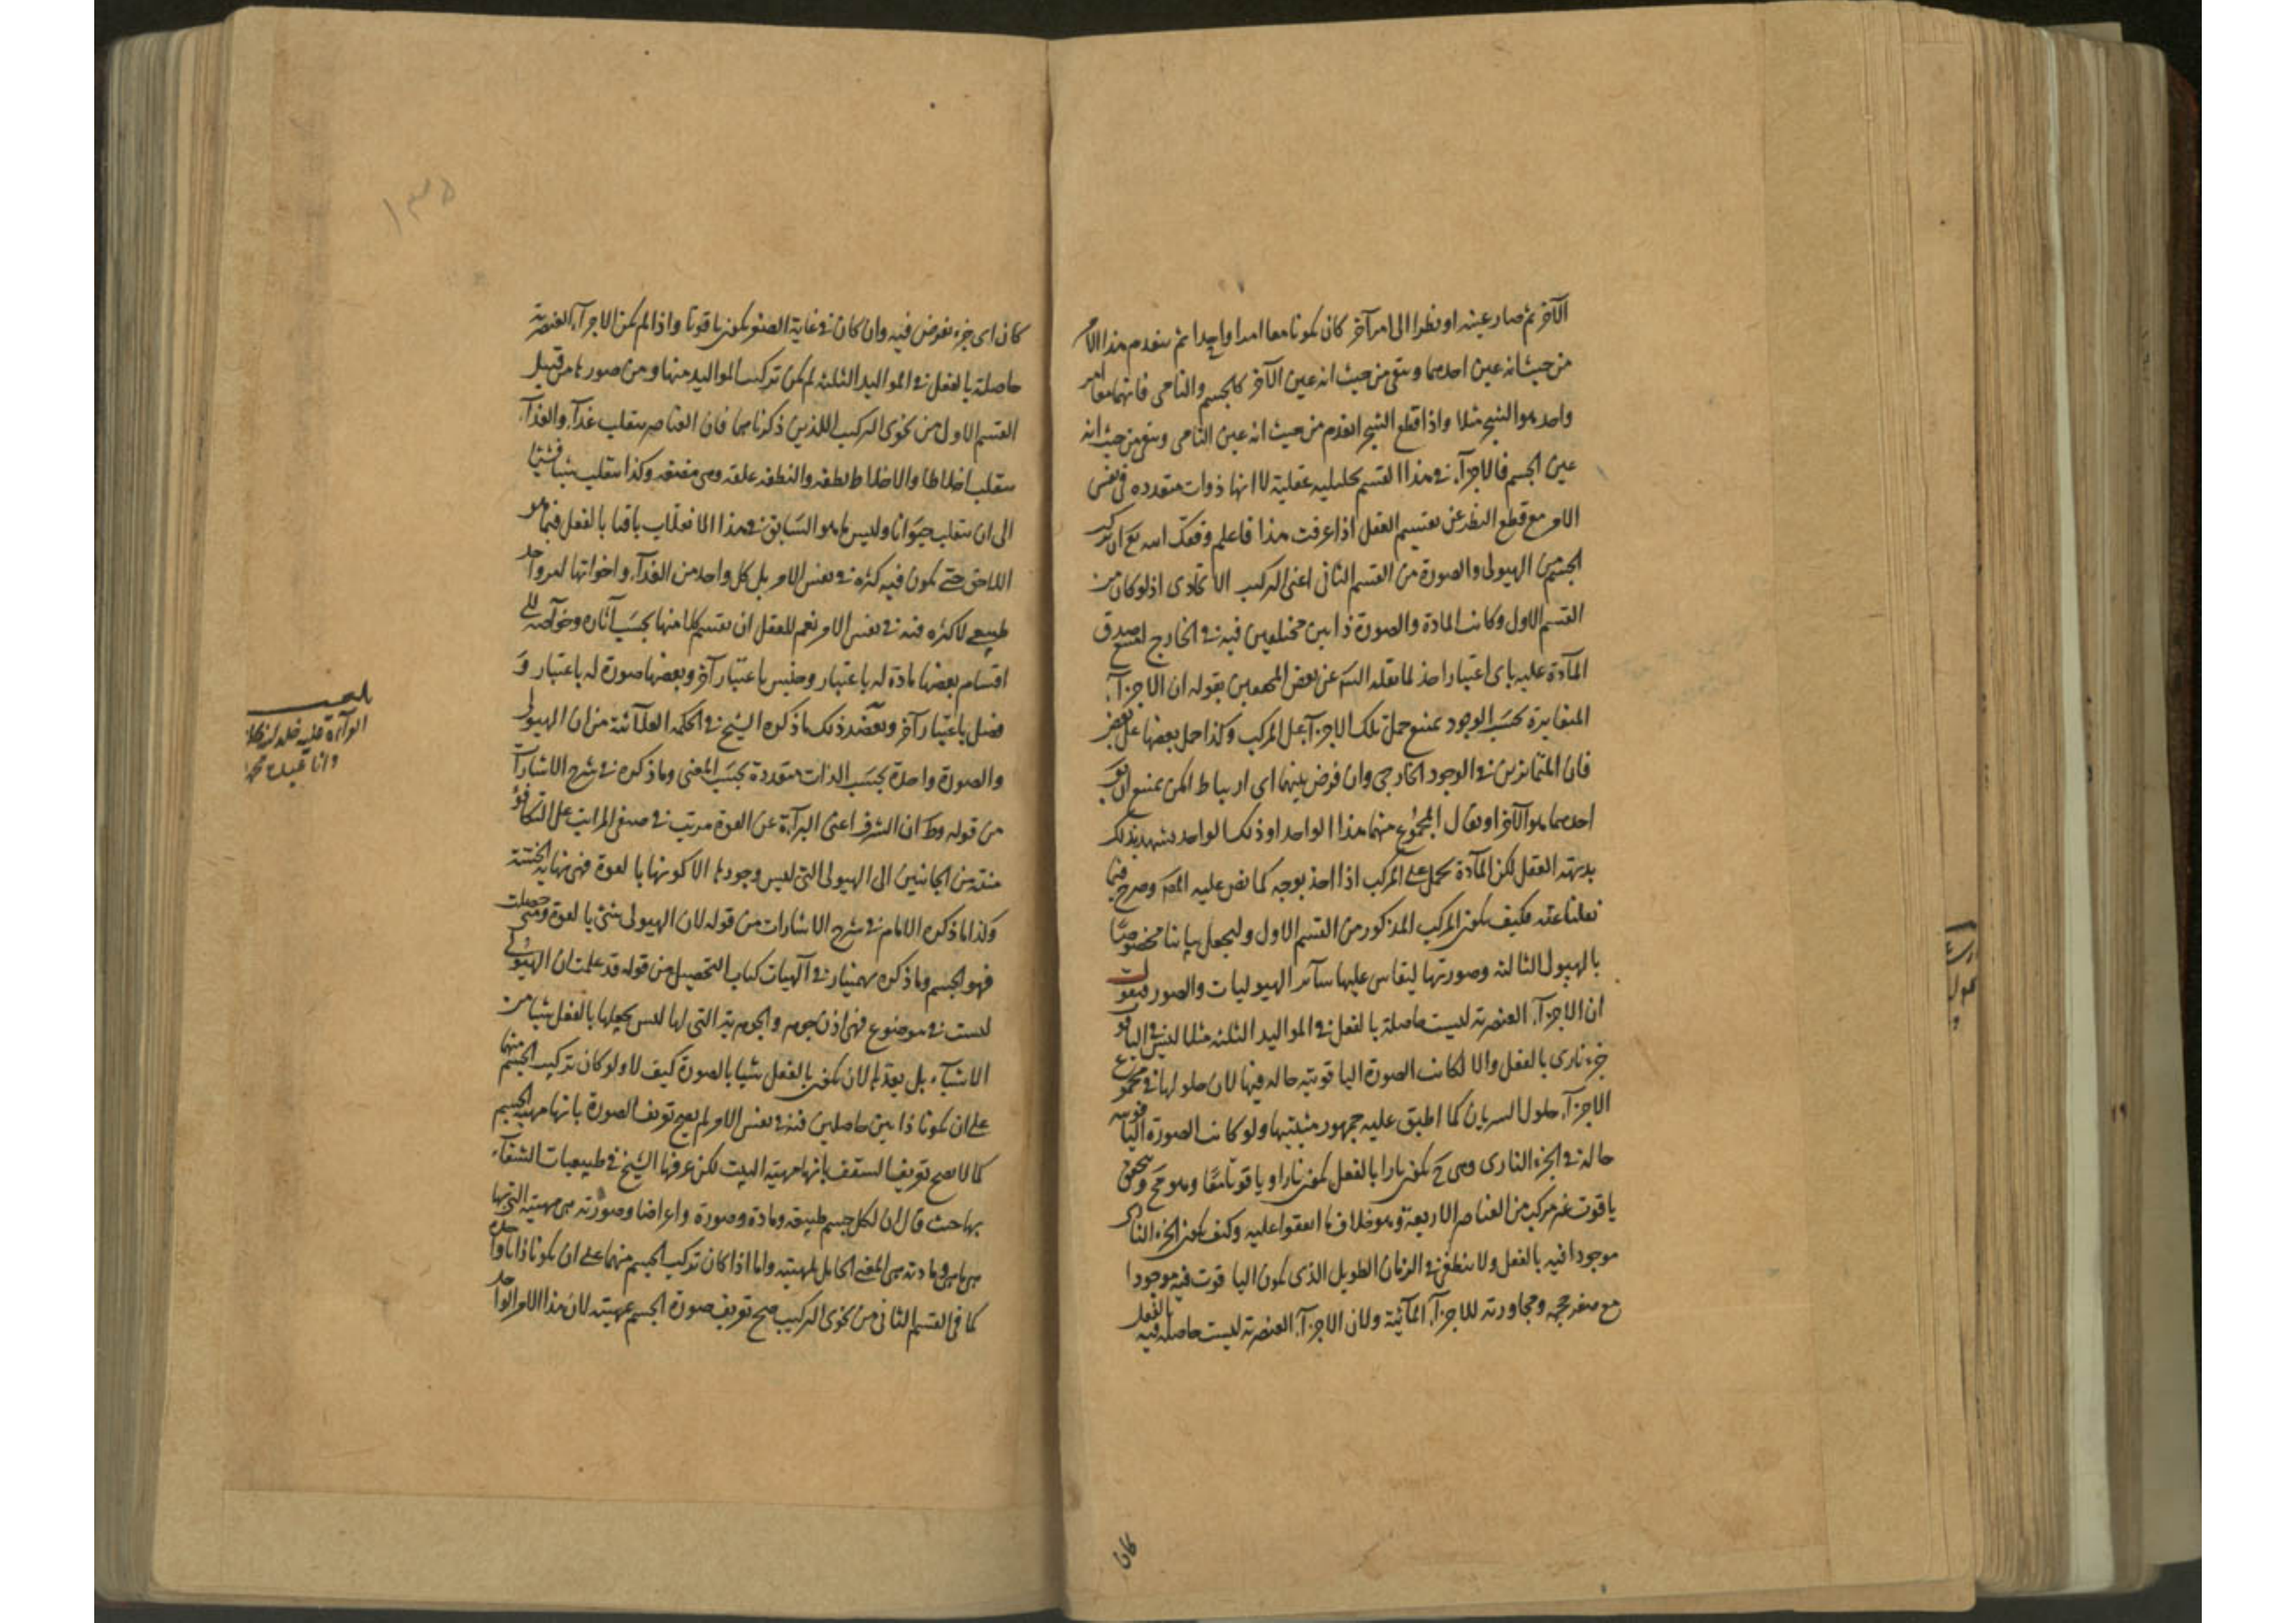 الآخر ثم صار عينه او نظرا الى امر آخر كان يكونا معا امرا واحدا ثم ينعدم هذا الامر
من حيث انه عين احدهما ويبقى من حيث انه عين الآخر كالجسم والنامى فانهما معا امر
واحد هو الشجر مثلا واذا قطع الشجر انعدم من حيث انه عين النامى ويبقى من حيث انه
عين الجسم فالاجزآء فى هذا القسم تحليليه عقلية لا انها ذوات متعدده فى نفس
الامر مع قطع النظر عن تقسيم العقل اذا عرفت هذا فاعلم وفقك الله تع ان تركب
الجسم من الهيولى والصورة من القسم الثانى اعنى التركيب الاتحادى اذ لو كان من
القسم الاول وكانت المادة والصورة ذاتين مختلفين فيه فى الخارج لامتنع صدق
المآدة عليه باى اعتبار اخذ لما نقله السيد عن بعض المحققين بقوله ان الاجزآء
المتغايرة بحسب الوجود يمتنع حمل تلك الاجزآء على المركب وكذا حمل بعضها على بعض
فان المتمايزين فى الوجود الخارجى وان فرض بينهما اى ارتباط امكن يمتنع ان يق
احدهما هو الآخر او يقال المجموع منهما هذا الواحد او ذلك الواحد يشهد بذلك
بديهة العقل لكن المآدة تحمل على المركب اذا اخذ بوجه كما نص عليه المصر وصرح فيما
نقلنا عنه فكيف يكون المركب المذكور من القسم الاول وليجعل بياننا مخصوصا
بالهيولى الثالثه وصورتها ليقاس عليها سآئر الهيوليات والصور فيقول
ان الاجزآء العنصريه ليست حاصلة بالفعل فى المواليد الثلثه مثلا ليس فى الياقوت
جزء نارى بالفعل والا لكانت الصورة الياقوتيه حاله فيها لان حلولها فى مجموع
الاجزآء حلول السريان كما اطبق عليه جمهور مثبتيها ولو كانت الصورة الياقوتيه
حاله فى الجزء النارى وهى ح يكون نارا بالفعل يكون نارا وياقوتا معًا وهو مح ويتحقق
ياقوت غير مركب من العناصر الاربعة وهو خلاف ما اتفقوا عليه وكيف يكون الجزء النارى
موجودا فيه بالفعل ولا ينطفى فى الزمان الطويل الذى يكون الياقوت فيه موجودا
مع صغر حجمه ومجاورته للاجزآء المآئية ولان الاجزآء العنصريه ليست حاصله فيه بالفعل
كان
١٣٥
كان اى جزء يفرض فيه وان كان فى غاية الصغر يكون ياقوتا واذا لم يكن الاجزآء العنصرية
حاصلة بالفعل فى المواليد الثلثه لم يكن تركيب المواليد منها ومن صورها من قبيل
القسم الاول من نحوى التركيب اللذين ذكرناهما فان العناصر ينقلب غذآء والغذآء
ينقلب اخلاطا والاخلاط نطفه والنطفه علقه وهى مضغه وكذا ينقلب شيئا فشيئا
الى ان ينقلب حيوانا وليس ما هو السابق فى هذا الانقلاب باقيا بالفعل فيما هو
اللاحق حتى يكون فيه كثره فى نفس الامر بل كل واحد من الغذآء واخواتها امر واحد
طبيعى لا كثره فيه فى نفس الامر نعم للعقل ان يقسم كلا منها بحسب آثاره وخوآصه الى
اقسام بعضها مادة له باعتبار وجنس باعتبار آخر وبعضها صورة له باعتبار و
فصل باعتبار آخر ويعضد ذلك ما ذكره الشيخ فى الحكمه العلآئيه من ان الهيولى
والصورة واحدة بحسب الذات متعددة بحسب المعنى وما ذكره فى شرح الاشارات
من قوله وظ ان الشرف اعنى البرآءة عن القوة مرتب فى صنفى المراتب على التكافؤ
منته من الجانبين الى الهيولى التى ليس وجودها الا كونها بالقوة فهى نهاية الخسة
وكذا ما ذكره الامام فى شرح الاشارات من قوله لان الهيولى شئ بالقوة ومتى حصلت
فهو الجسم وما ذكره بهمنيار فى آلهيات كتاب التحصيل من قوله قد علمت ان الهيولى
ليست فى موضوع فهى اذن جوهر والجوهرية التى لها ليس يجعلها بالفعل شيئا من
الاشيآء بل يعدها لان يكون بالفعل شيئا بالصورة كيف لا ولو كان تركيب الجسم منهما
على ان يكونا ذاتين حاصلين فيه فى نفس الامر لم يصح تعريف الصورة بانها مهية الجسم
كما لا يصح تعريف السقف بانها مهية البيت لكن عرفها الشيخ فى طبيعيات الشفآء
بها حيث قال ان لكل جسم طبيعه ومادة وصورة واعراضا وصورته هى مهيته التى بها
هى ما هى ومادته هى المعنى الحامل لمهيته واما اذا كان تركيب الجسم منهما على ان يكونا ذاتا واحدة
كما فى القسم الثانى من نحوى التركيب صح تعريف صورة الجسم بمهيته لان هذا الامر الواحد